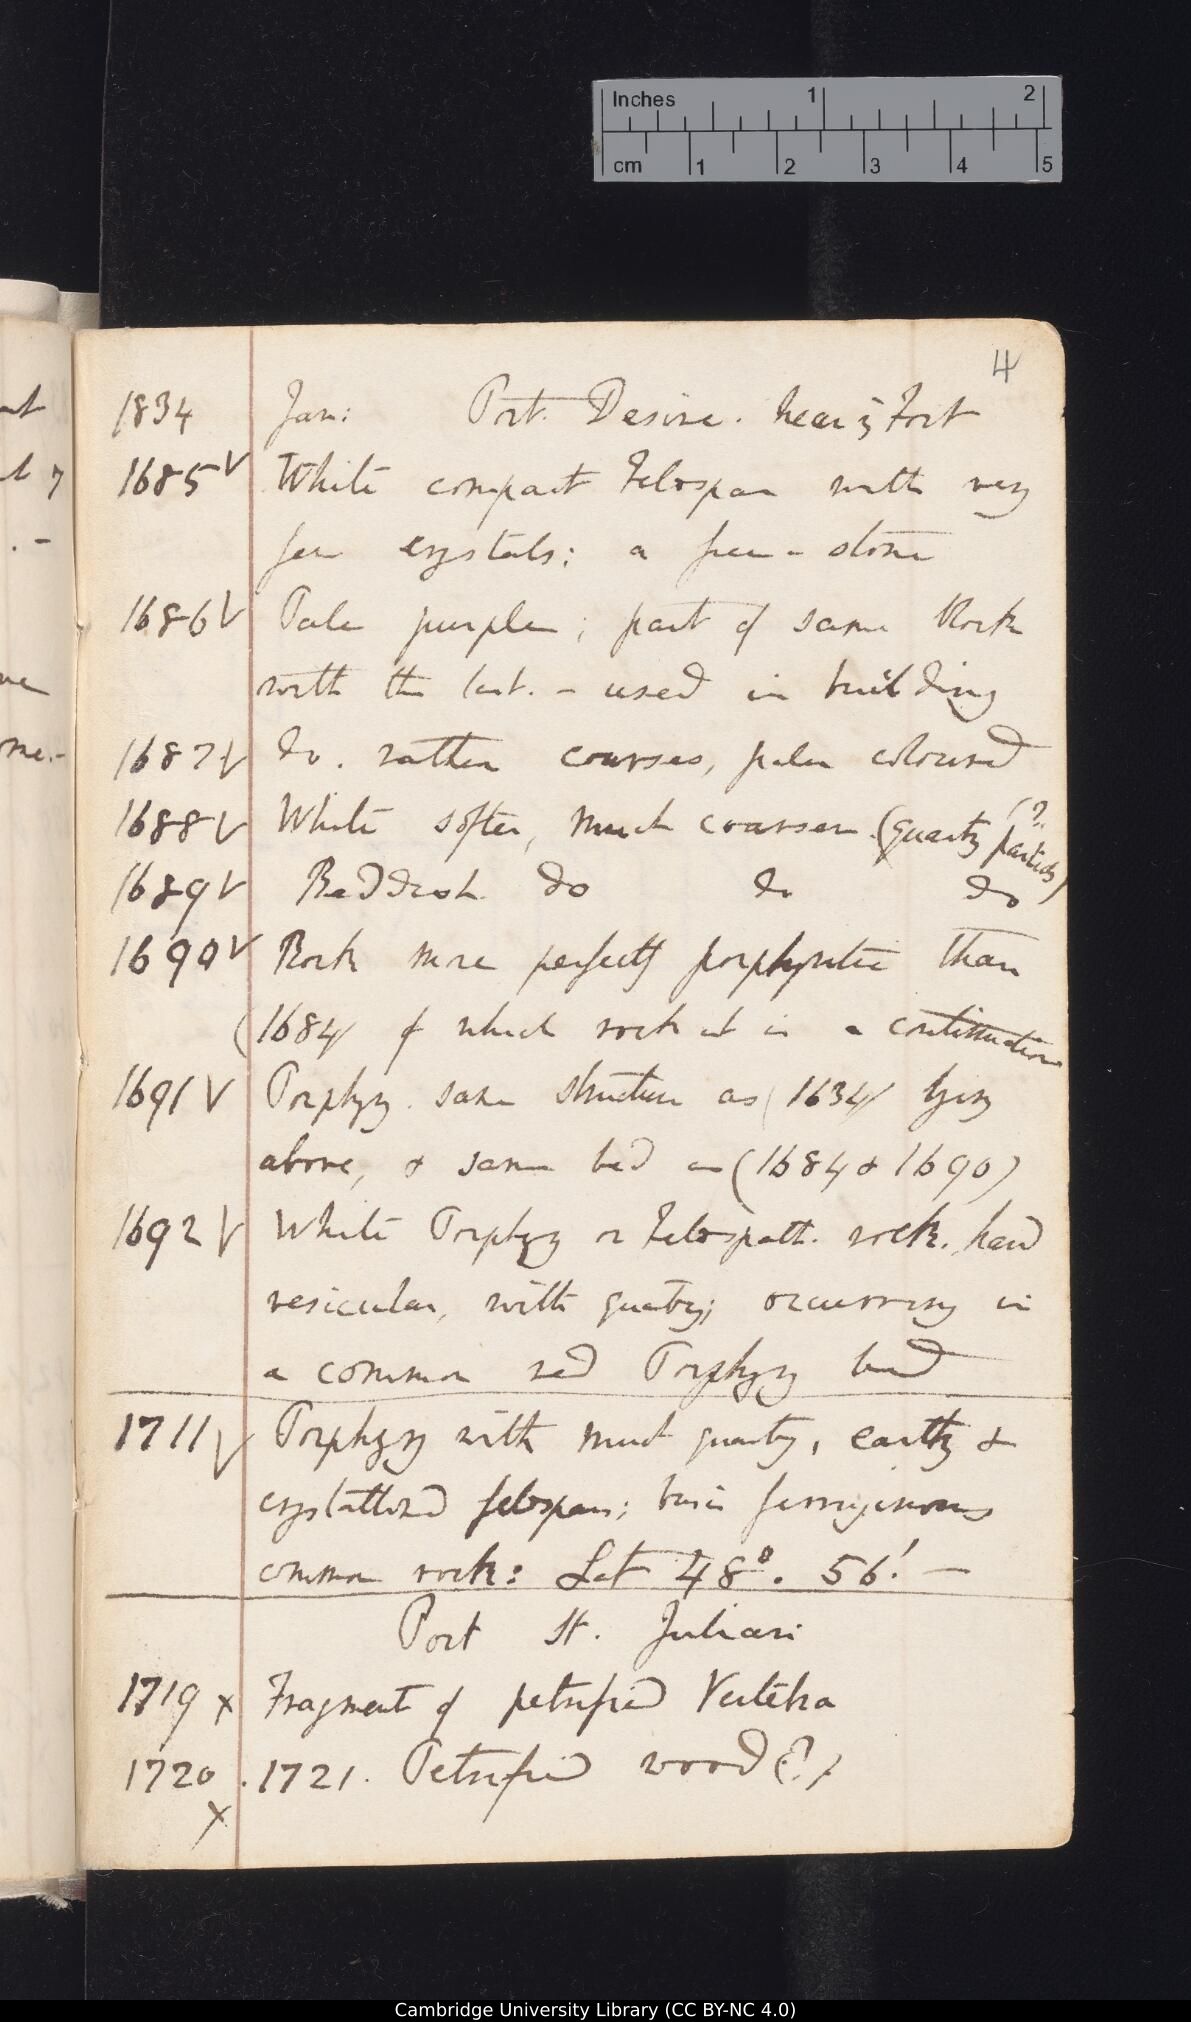 Inches 1 2
cm 1 2 3 4 5
4
1834 Jan: Port. Desire. near Fort
1685 V White compact Felspar with very
few crystals: a free-stone
1686 V Pale purple; part of same Rock
with the last. - used in building
1687 V do. rather coarser, paler coloured
1688 V White softer, much coarser. (quartz particles (?)
1689 V Reddish do do do
1690 V Rock more perfectly porphyritic than
(1684) of which rock it is a continuation
1691 V Porphyry. same structure as (1634) lying
above, & same bed as (1684 & 1690)
1692 V White Porphyry or Felspath. rock. hard
vesicular, with quartz; occurring in
a common red Porphyry bed
1711 V Porphyry with much quartz, earthy &
crystallized felspar; basis ferruginous
common rock: Lat 48°. 56'. —
Port St. Julian
1719 x Fragment of petrified Vertebra
1720 . 1721. Petrified wood (?)
x
Cambridge University Library (CC BY-NC 4.0)